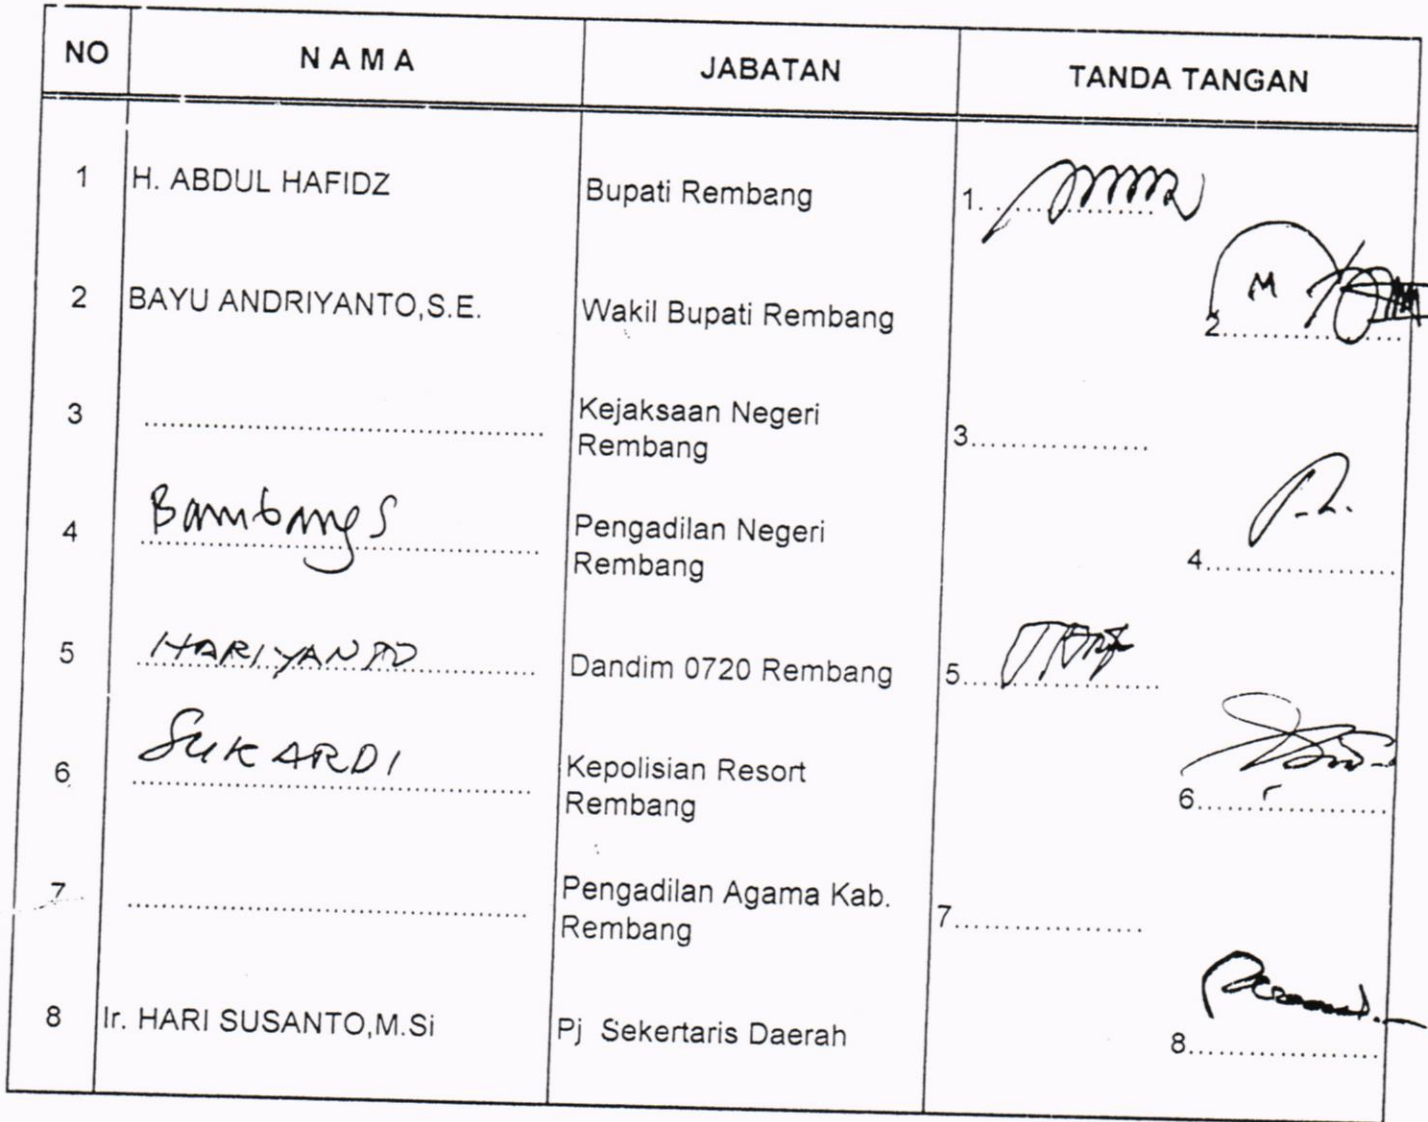 NO NAMA JABATAN TANDA TANGAN
1 H. ABDUL HAFIDZ Bupati Rembang 1. ..................
2 BAYU ANDRIYANTO,S.E. Wakil Bupati Rembang 2..................
3 .................................................. Kejaksaan Negeri
Rembang 3..................
4 Bambang S Pengadilan Negeri
Rembang 4..................
5 HARIYANTO Dandim 0720 Rembang 5..................
6 SUKARDI Kepolisian Resort
Rembang 6..................
7 .................................................. Pengadilan Agama Kab.
Rembang 7..................
8 Ir. HARI SUSANTO,M.Si Pj Sekertaris Daerah 8..................